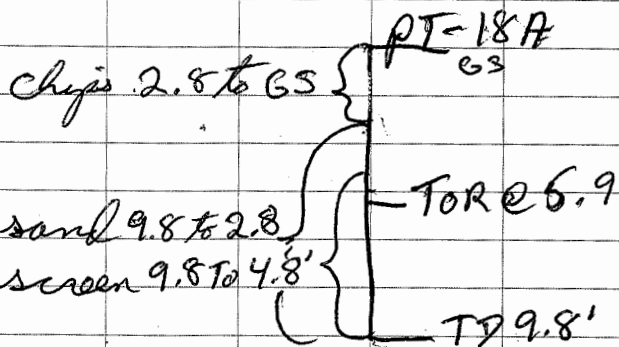 PT-18A
GS
chips 2.8 to GS
TOR @ 5.9
sand 9.8 to 2.8
screen 9.8 To 4.8'
TD 9.8'